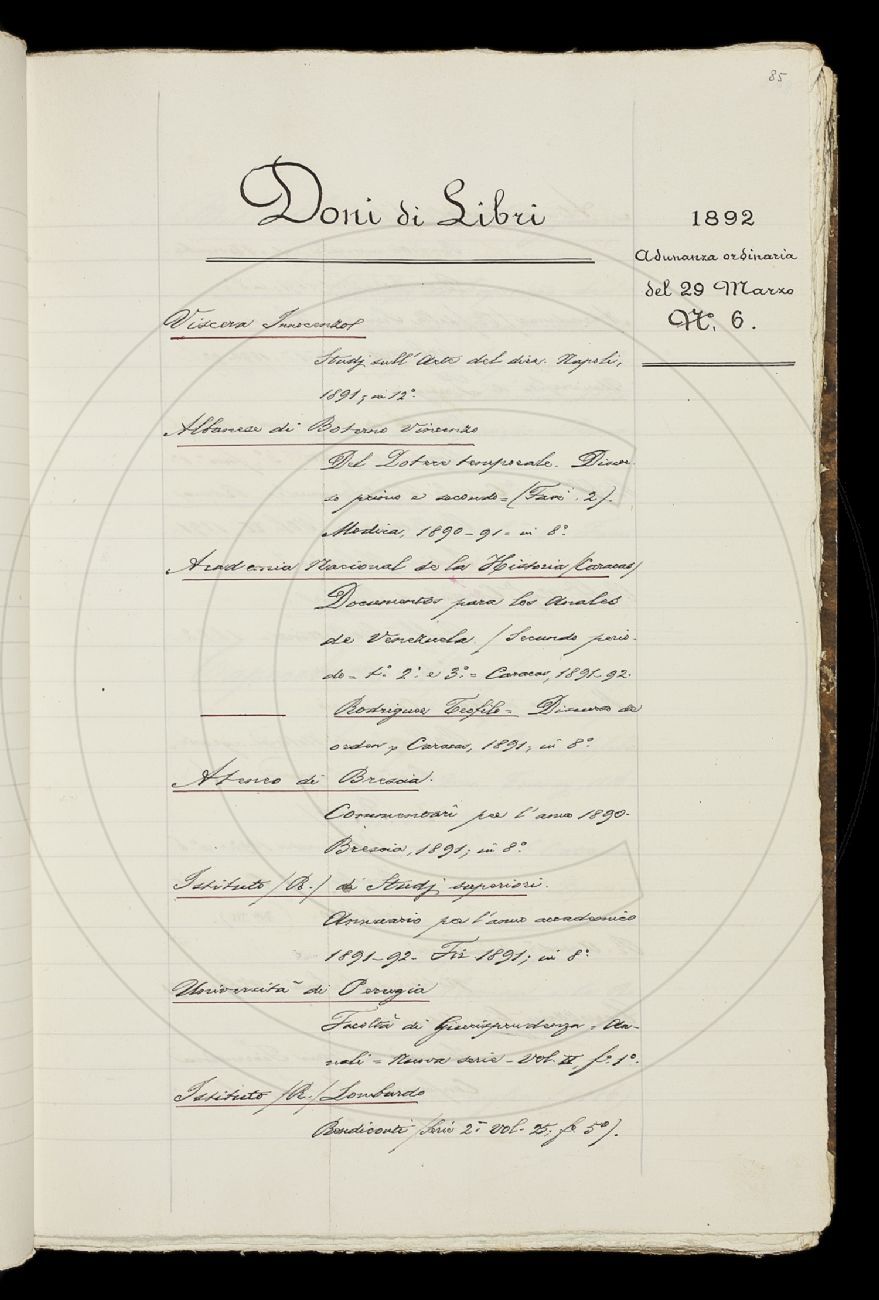 85
Doni di Libri
1892
Adunanza ordinaria
del 29 Marzo
N.° 6.
Viscera Innocenzo
Studj sull'Arte del dire. Napoli,
1891; in 12°.
Albanese di Boterno Vincenzo
Del Potere temporale. Discor-
so primo e secondo = (Fasci. 2).
Modica, 1890-91 = in 8°.
Academia Nacional de la Historia (Caracas)
Documentos para los Anales
de Venezuela (Secundo perio-
do = 1.° 2.° e 3.° = Caracas, 1891-92.
Rodriguez Teofilo = Discurso de
orden = Caracas, 1891; in 8°.
Ateneo di Brescia.
Commentari per l'anno 1890.
Brescia, 1891; in 8°.
Istituto (R.) di Studj superiori.
Annuario per l'anno accademico
1891-92. Fir. 1891; in 8°.
Università di Perugia
Facoltà di Giurisprudenza = An-
nali = Nuova serie = Vol. II, f.° 1°.
Istituto (R.) Lombardo
Rendiconti (Serie 2.ª Vol. 25, f.° 5°).